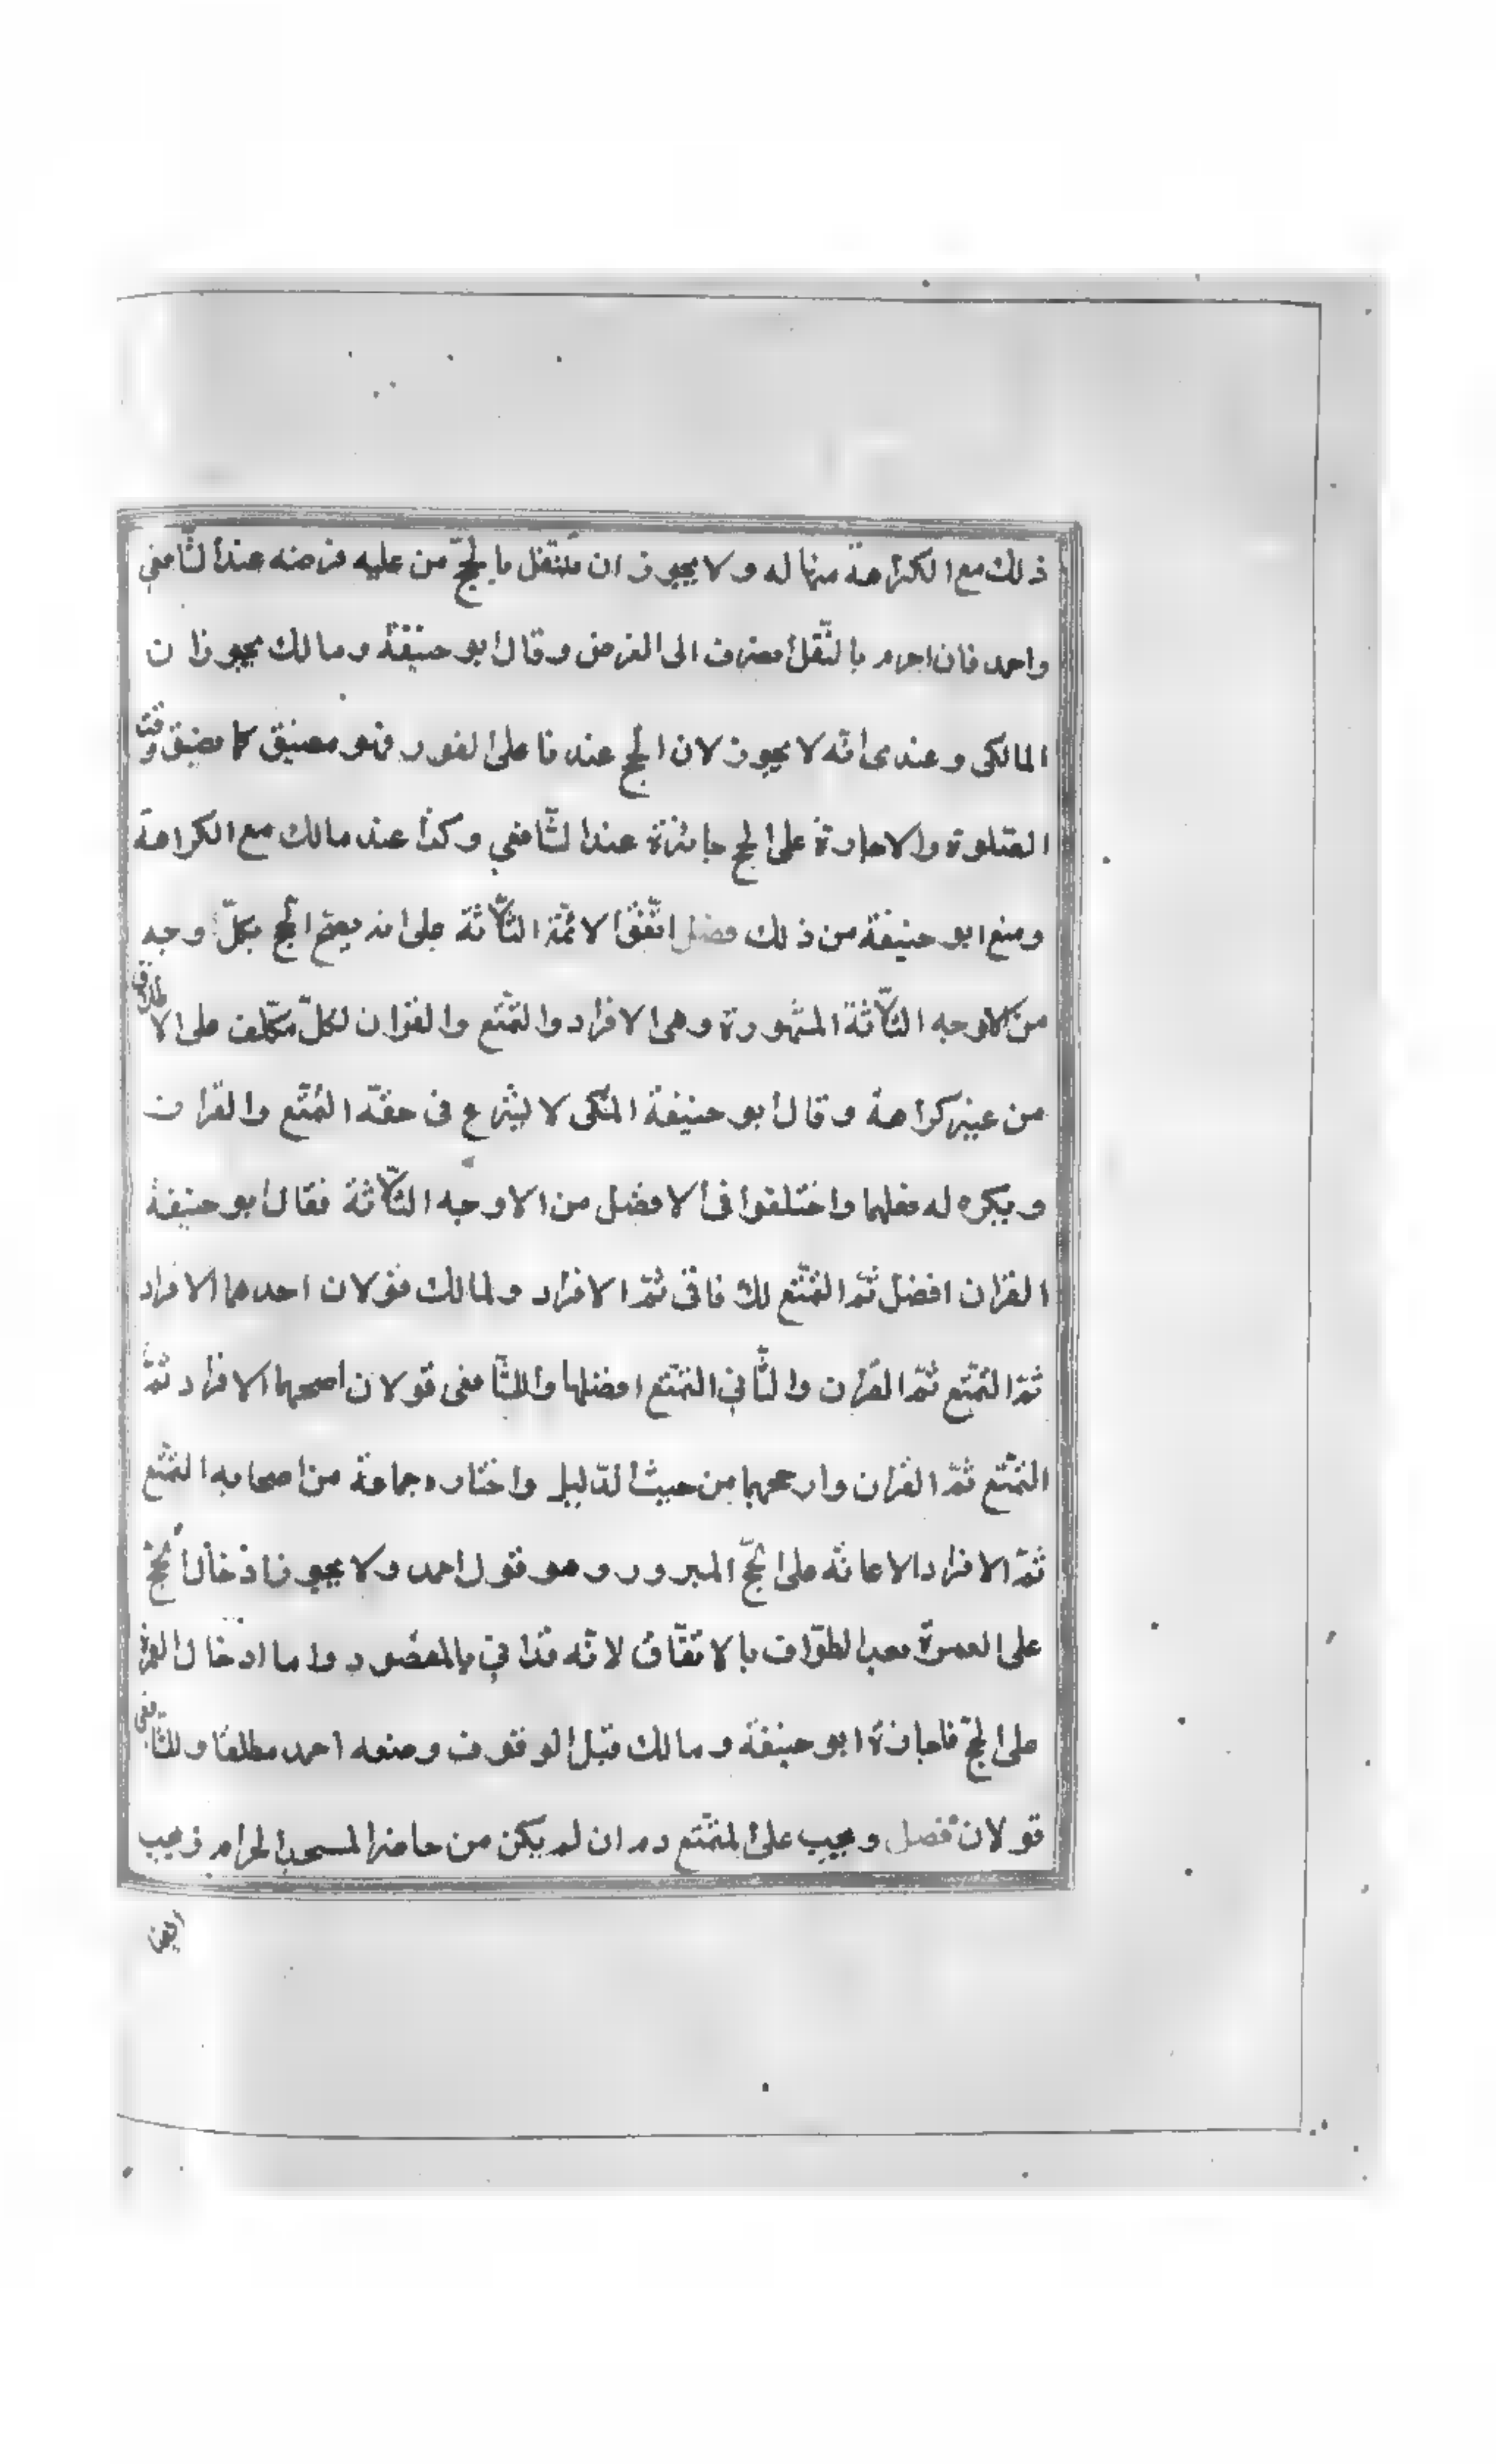 ذلك مع الكراهة منها له ولا يجوز ان يتنفل بالحجّ من عليه فرضه عند الشّافعي
واحمد فان احرم بالنّفل انصرف الى الفرض وقال ابو حنيفة ومالك يجوز ان
المالكى وعندى انّه لا يجوز لان الحج عندنا على الفور فهو مضيق كما مضيق وقت
الصّلوة والاجارة على الحج جائزة عند الشّافعي وكذا عند مالك مع الكراهة
ومنع ابو حنيفة من ذلك فصل اتّفق الائمّة الثّلاثة على انه يصحّ الحج بكلّ وجه
من الاوجه الثّلاثة المشهورة وهى الافراد والتمّتع والقران لكلّ مكلّف على الاطلاق
من غير كراهة وقال ابو حنيفة المكى لا يشرع فى حقّه التمّتع والقران
ويكره له فعلهما واختلفوا فى الافضل من الاوجه الثّلاثة فقال ابو حنيفة
القران افضل ثمّ التمّتع للآفاقى ثمّ الافراد ولمالك قولان احدهما الافراد
ثمّ التمّتع ثمّ القران والثّاني التمتع افضلها وللشّافعى قولان اصحهما الافراد ثمّ
التمّتع ثمّ القران وارجحهما من حيث الدّليل واختاره جماعة من اصحابه التمّتع
ثمّ الافراد الاعانّة على الحجّ المبرور وهو قول احمد ولا يجوز ادخال الحجّ
على العمرة بعد الطوّاف بالاتفّاق لانّه قد اتى بالمقصود واما ادخال العمرة
على الحجّ فاجازة ابو حنيفة ومالك قبل الوقوف ومنعه احمد مطلقا وللشّافعى
قولان فصل ويجب على المتمّتع دم ان لم يكن من حاضر المسجد الحرام ويجب